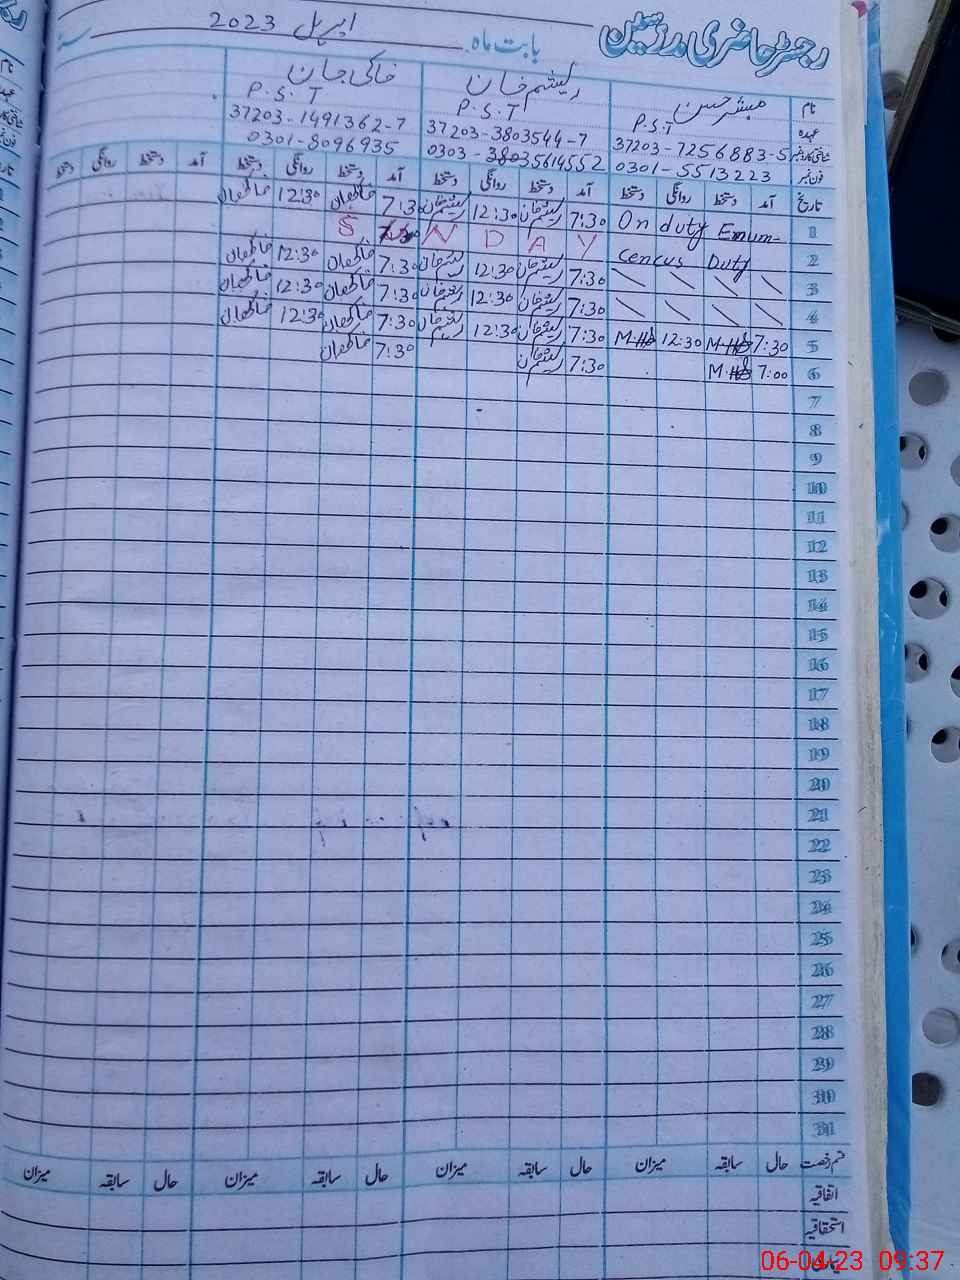 رجسٹر حاضری مدرسین بابت ماہ اپریل 2023 سنہ
نام مبشر حسن ریشم خان خاکی جان
عہدہ P.S.T P.S.T P.S.T
شناختی کارڈ نمبر 37203-7256883-5 37203-3803544-7 37203-1491362-7
فون نمبر 0301-5513223 0303-5614552 0301-8096935
تاریخ آمد دستخط روانگی دستخط آمد دستخط روانگی دستخط آمد دستخط روانگی دستخط آمد دستخط روانگی دستخط
1 On duty Enum- 7:30 ریشم خان 12:30 ریشم خان 7:30 خاکی جان 12:30 خاکی جان
2 Cencus Duty S U N D A Y
3 7:30 ریشم خان 12:30 ریشم خان 7:30 خاکی جان 12:30 خاکی جان
4 7:30 ریشم خان 12:30 ریشم خان 7:30 خاکی جان 12:30 خاکی جان
5 7:30 12:30 7:30 ریشم خان 12:30 ریشم خان 7:30 خاکی جان 12:30 خاکی جان
6 7:00 7:30 ریشم خان 7:30 خاکی جان
7
8
9
10
11
12
13
14
15
16
17
18
19
20
21
22
23
24
25
26
27
28
29
30
31
قسم رخصت حال سابقہ میزان حال سابقہ میزان حال سابقہ میزان حال سابقہ میزان
اتفاقیہ
استحقاقیہ
06-04-23 09:37